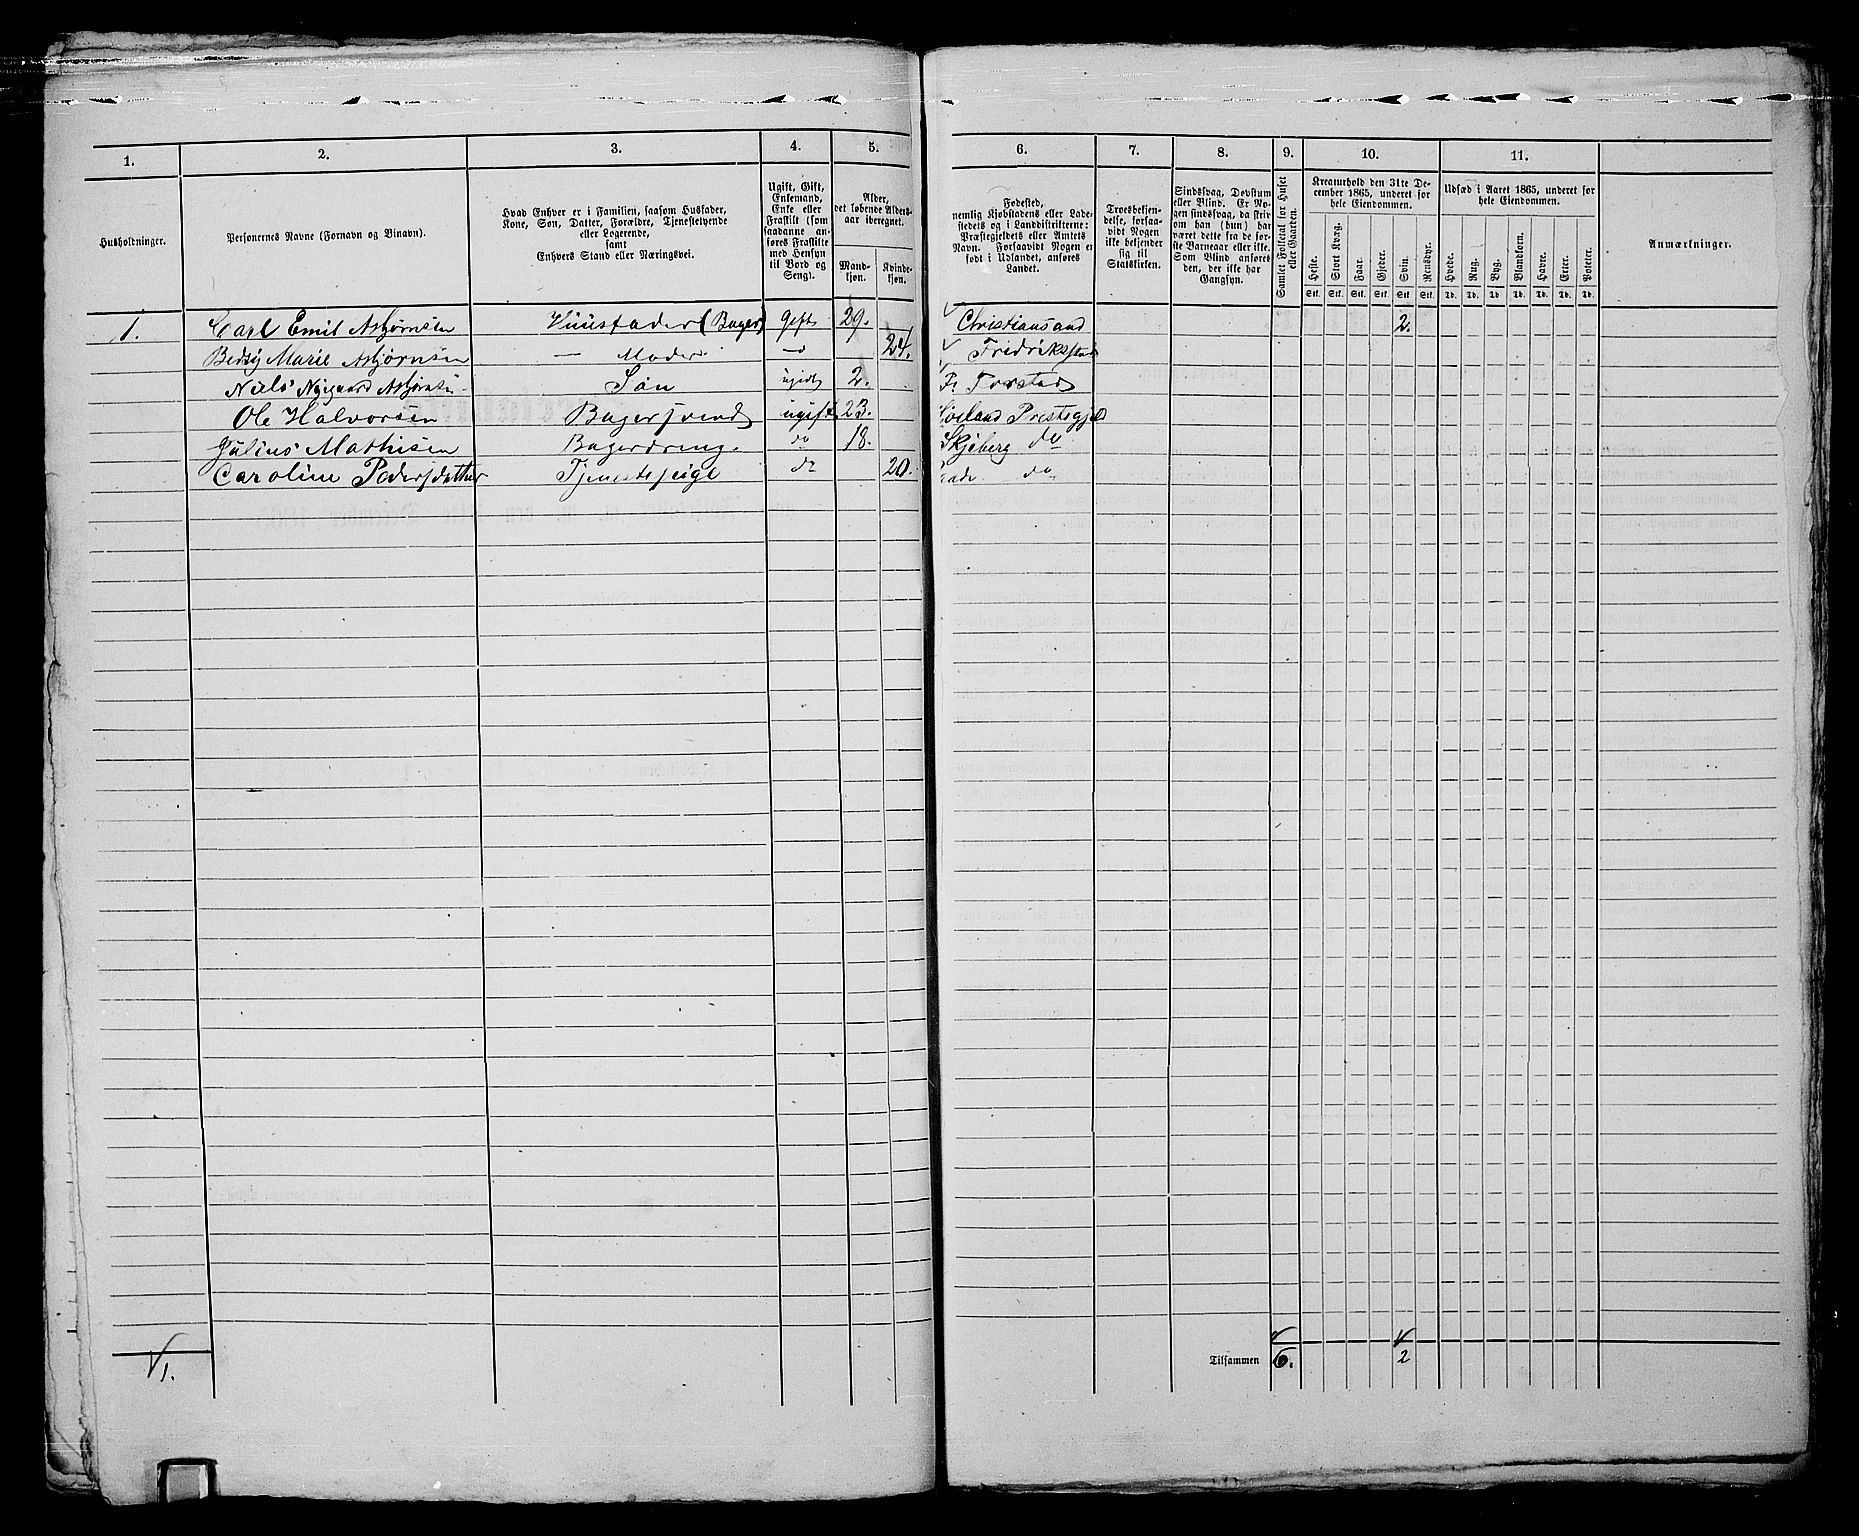 1. 2. 3. 4. 5. 6. 7. 8. 9. 10. 11.
Husholdninger.
Personernes Navne (Fornavn og Binavn).
Hvad Enhver er i Familien, saasom Husfader,
Kone, Søn, Datter, Forældre, Tjenestetyende
eller Logerende,
samt
Enhvers Stand eller Næringsvei.
Ugift, Gift,
Enkemand,
Enke eller
Fraskilt (som
saadanne an-
føres Fraskilte
med Hensyn
til Bord og
Seng).
Alder,
det løbende Alders-
aar iberegnet.
Mand-
kjøn.
Kvinde-
kjøn.
Fødested,
nemlig Kjøbstadens eller Lade-
stedets og i Landdistrikterne:
Præstegjeldets eller Amtets
Navn. Forsaavidt Nogen er
født i Udlandet, anføres
Landet.
Troesbekjen-
delse, forsaa-
vidt Nogen
ikke bekjender
sig til
Statskirken.
Sindssvag, Døvstum
eller Blind. Er No-
gen sindssvag, da skriv
om han (hun) har
været dette fra de før-
ste Barneaar eller ikke.
Som Blind anføres
den, der ikke har
Gangsyn.
Samlet Folketal for Huset
eller Gaarden.
Kreaturhold den 31te De-
cember 1865, underet for
hele Eiendommen.
Heste. Stort Kvæg. Faar. Gjeder. Svin. Rensdyr.
Stk. Stk. Stk. Stk. Stk. Stk.
Udsæd i Aaret 1865, underet for
hele Eiendommen.
Hvede. Rug. Byg. Blandkorn. Havre. Erter. Poteter.
Td. Td. Td. Td. Td. Td. Td.
Anmærkninger.
1. Carl Emil Asbjørnsen Huusfader (Bager) gift 29. Christiansand 2.
Betsy Marie Asbjørnsen — Moder — 24. Fredrikstad
Niels Nygaard Asbjørnsen Søn ugift 2.
Ole Halvorsen Bagersvend ugift 23. Prestegjeld
Julius Mathisen Bagerdreng. do 18. Skjeberg do
Caroline Pedersdatter Tjenestepige do 20. do
1.
Tilsammen 6. 2